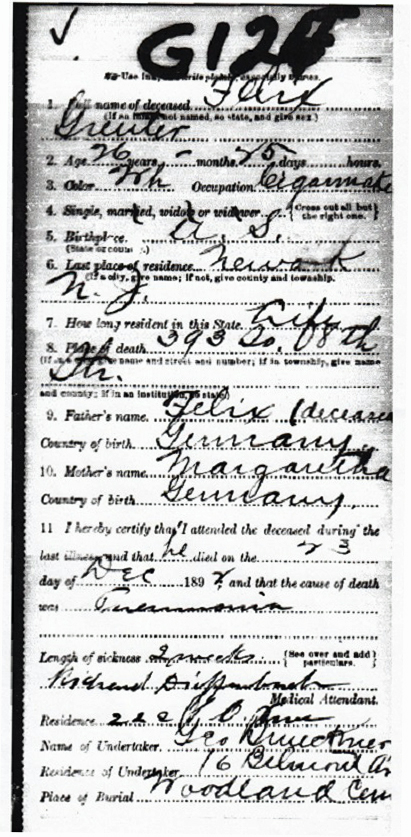 ✓
G12
Use Ink, and write plainly, especially names.
1. Full name of deceased Felix
(If an infant not named, so state, and give sex)
Greuter
2. Age 26 years - months 25 days hours.
3. Color Wh. Occupation Cigarmake
4. Single, married, widow or widower S. {Cross out all but the right one.}
5. Birthplace. U. S.
(State or country.)
6. Last place of residence Newark
(If a city, give name; if not, give county and township.
N. J.
7. How long resident in this State. Life
8. Place of death 393 So. 18th
(If in city, give name and street and number; if in township, give name
Str.
and county; if in an institution, so state)
9. Father's name. Felix (decease
Country of birth Germany
10. Mother's name. Margaretha
Country of birth Germany.
11 I hereby certify that I attended the deceased during the
last illness, and that he died on the 23
day of Dec 189 and that the cause of death
was Pneumonia
Length of sickness 2 weeks {See over and add particulars.}
Richard
Medical Attendant.
Residence
Name of Undertaker. Geo Brueckner
Residence of Undertaker 16 Belmont Av
Place of Burial Woodland Cem